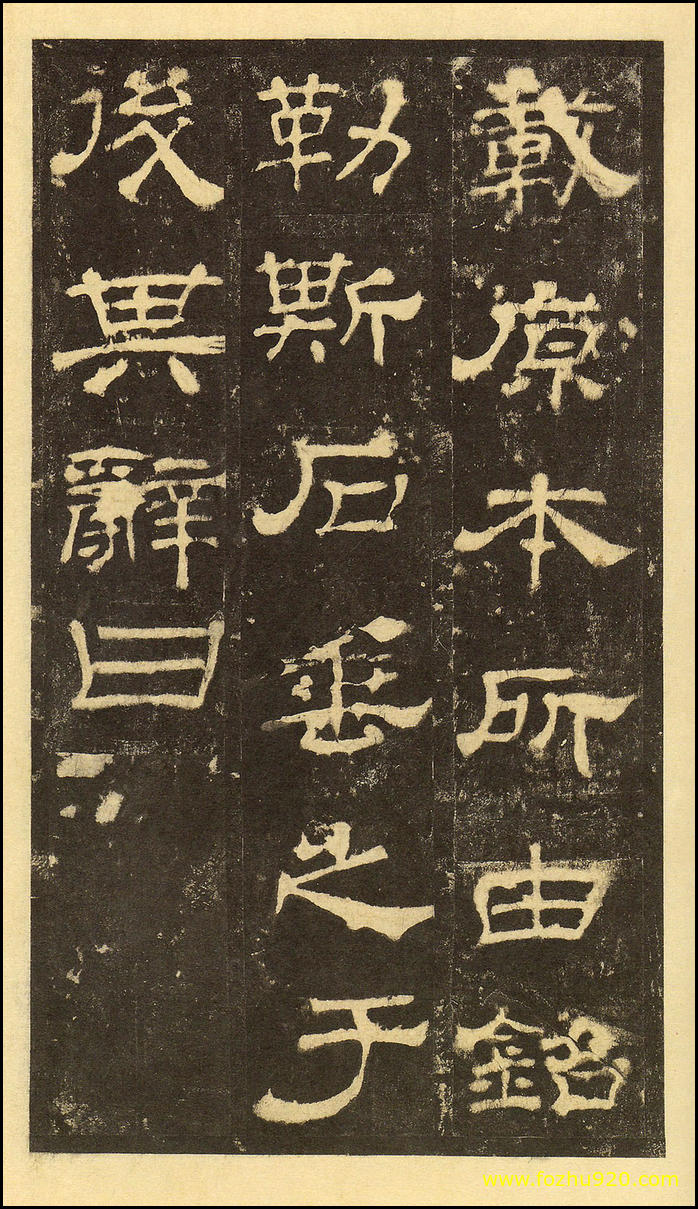 載原本所由銘
勒斯石垂之于
後其辭曰
www.fozhu920.com